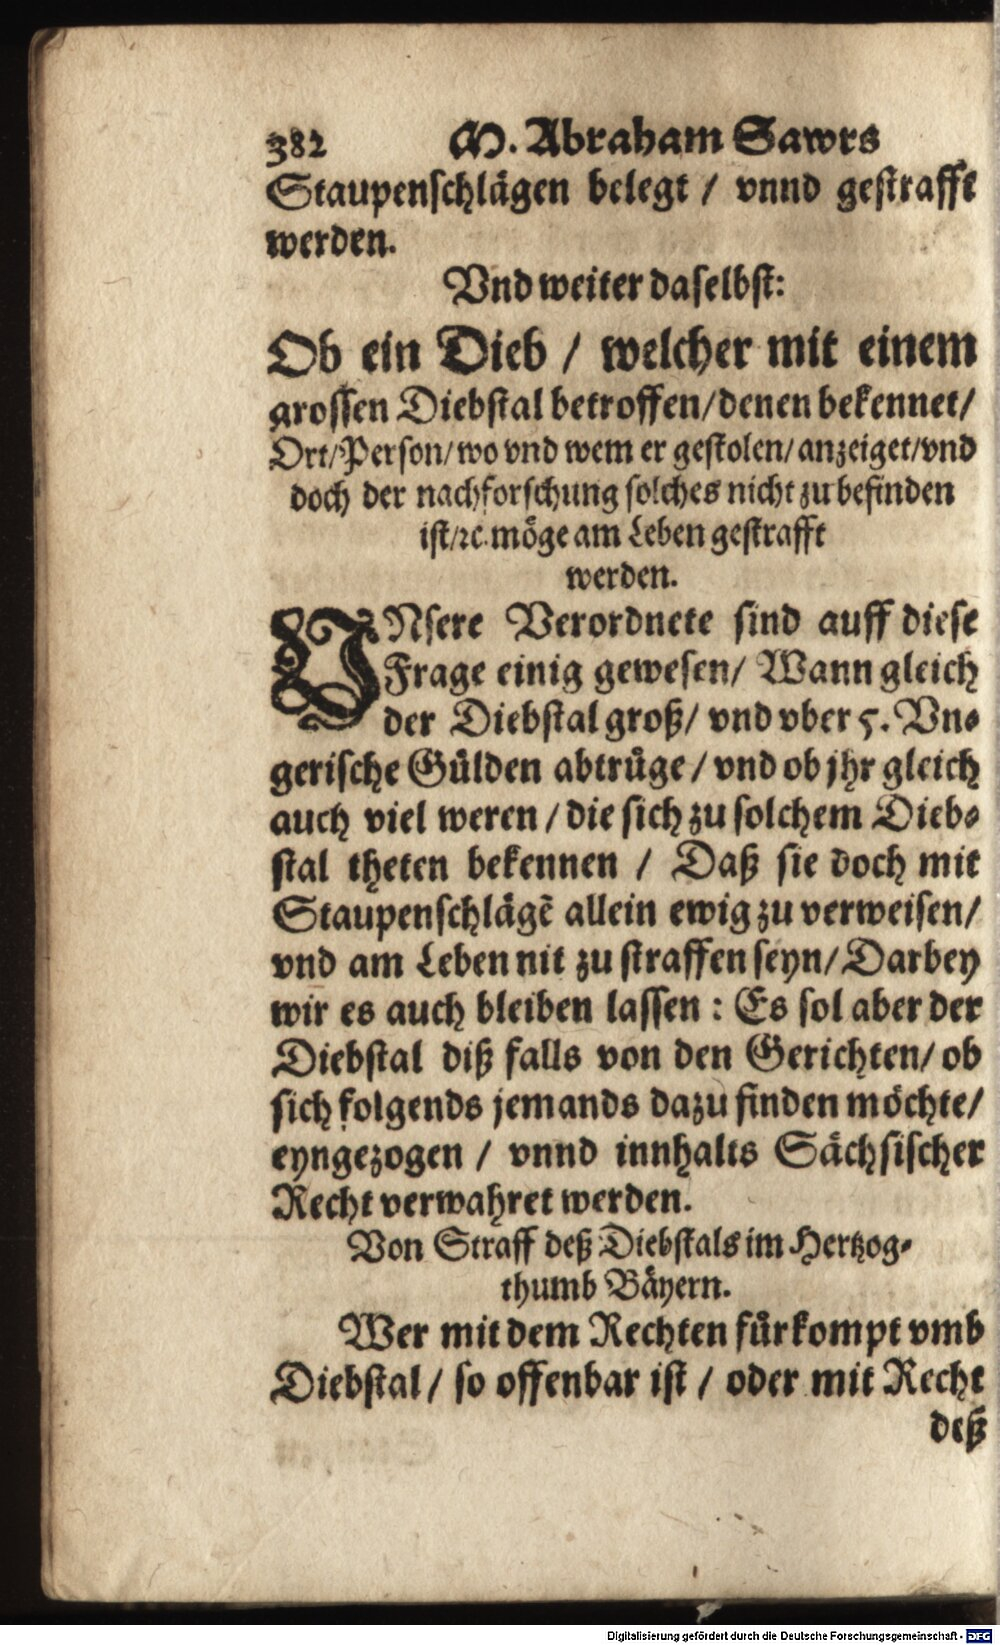 382 M. Abraham Sawrs
Staupenschlägen belegt / vnnd gestrafft
werden.
Vnd weiter daselbst:
Ob ein Dieb / welcher mit einem
grossen Diebstal betroffen/denen bekennet/
Ort/Person/wo vnd wem er gestolen/anzeiget/vnd
doch der nachforschung solches nicht zu befinden
ist/ꝛc. möge am Leben gestrafft
werden.
VNsere Verordnete sind auff diese
Frage einig gewesen/ Wann gleich
der Diebstal groß/ vnd vber 5. Vn⸗
gerische Gülden abtrůge / vnd ob jhr gleich
auch viel weren / die sich zu solchem Dieb⸗
stal theten bekennen / Daß sie doch mit
Staupenschlägẽ allein ewig zu verweisen/
vnd am Leben nit zu straffen seyn/ Darbey
wir es auch bleiben lassen : Es sol aber der
Diebstal diß falls von den Gerichten/ ob
sich folgends jemands dazu finden möchte/
eyngezogen / vnnd innhalts Sächsischer
Recht verwahret werden.
Von Straff deß Diebstals im Hertzog⸗
thumb Bäyern.
Wer mit dem Rechten fůrkompt vmb
Diebstal/ so offenbar ist / oder mit Recht
deß
Digitalisierung gefördert durch die Deutsche Forschungsgemeinschaft - DFG